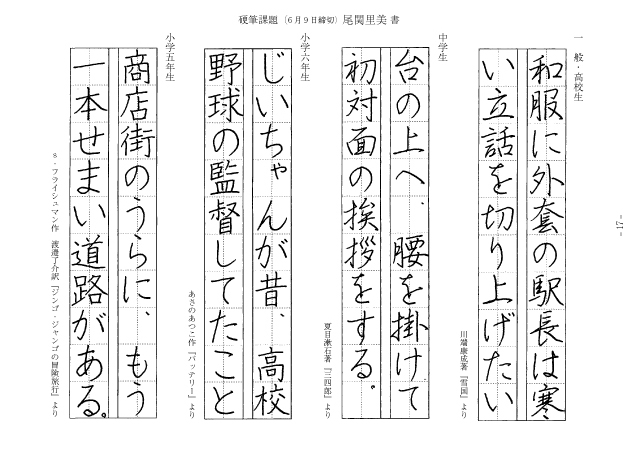 硬筆課題（6月9日締切）尾関里美 書
一般・高校生
和服に外套の駅長は寒
い立話を切り上げたい
川端康成著『雪国』より
中学生
台の上へ、腰を掛けて
初対面の挨拶をする。
夏目漱石著『三四郎』より
小学六年生
じいちゃんが昔、高校
野球の監督してたこと
あさのあつこ作『バッテリー』より
小学五年生
商店街のうらに、もう
一本せまい道路がある。
s・フライシュマン作　渡邉了介訳『ジンゴ・ジャンゴの冒険旅行』より
- 17 -